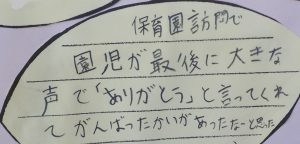 保育園訪問で
園児が最後に大きな
声で「ありがとう」と言ってくれ
てがんばったかいがあったなーと思った